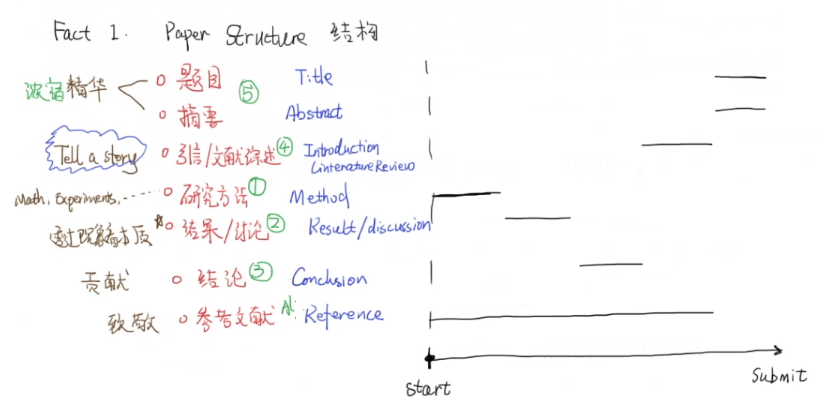 Fact 1. Paper Structure 结构
浓缩精华 题目 ⑤ Title
摘要 Abstract
Tell a story 引信/文献综述 ④ Introduction
Linterature Review
Math, Experiments, ...... 研究方法 ① Method
透过现象看本质 * 结果/讨论 ② Result/discussion
贡献 结论 ③ Conclusion
致敬 参考文献 Reference
start submit